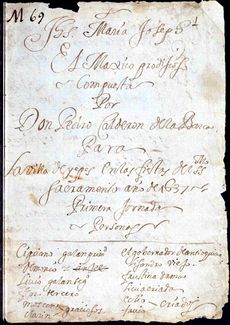 M 69
Jhs Maria Joseph
El Magico prodigioso
Compuesta
Por
Don Pedro Calderon de la Barca
Para
La villa de yepes en las fiestas del SSmo
Sacramento año de 1637
Primera Jornada
Personas
Cipriano galan
Demonio
Livio galan
floro tercero
moscon graciosos
clarin
el gobernador de antioquia
lisandro viejo
faustina dama
livia criada
celio criados
favio